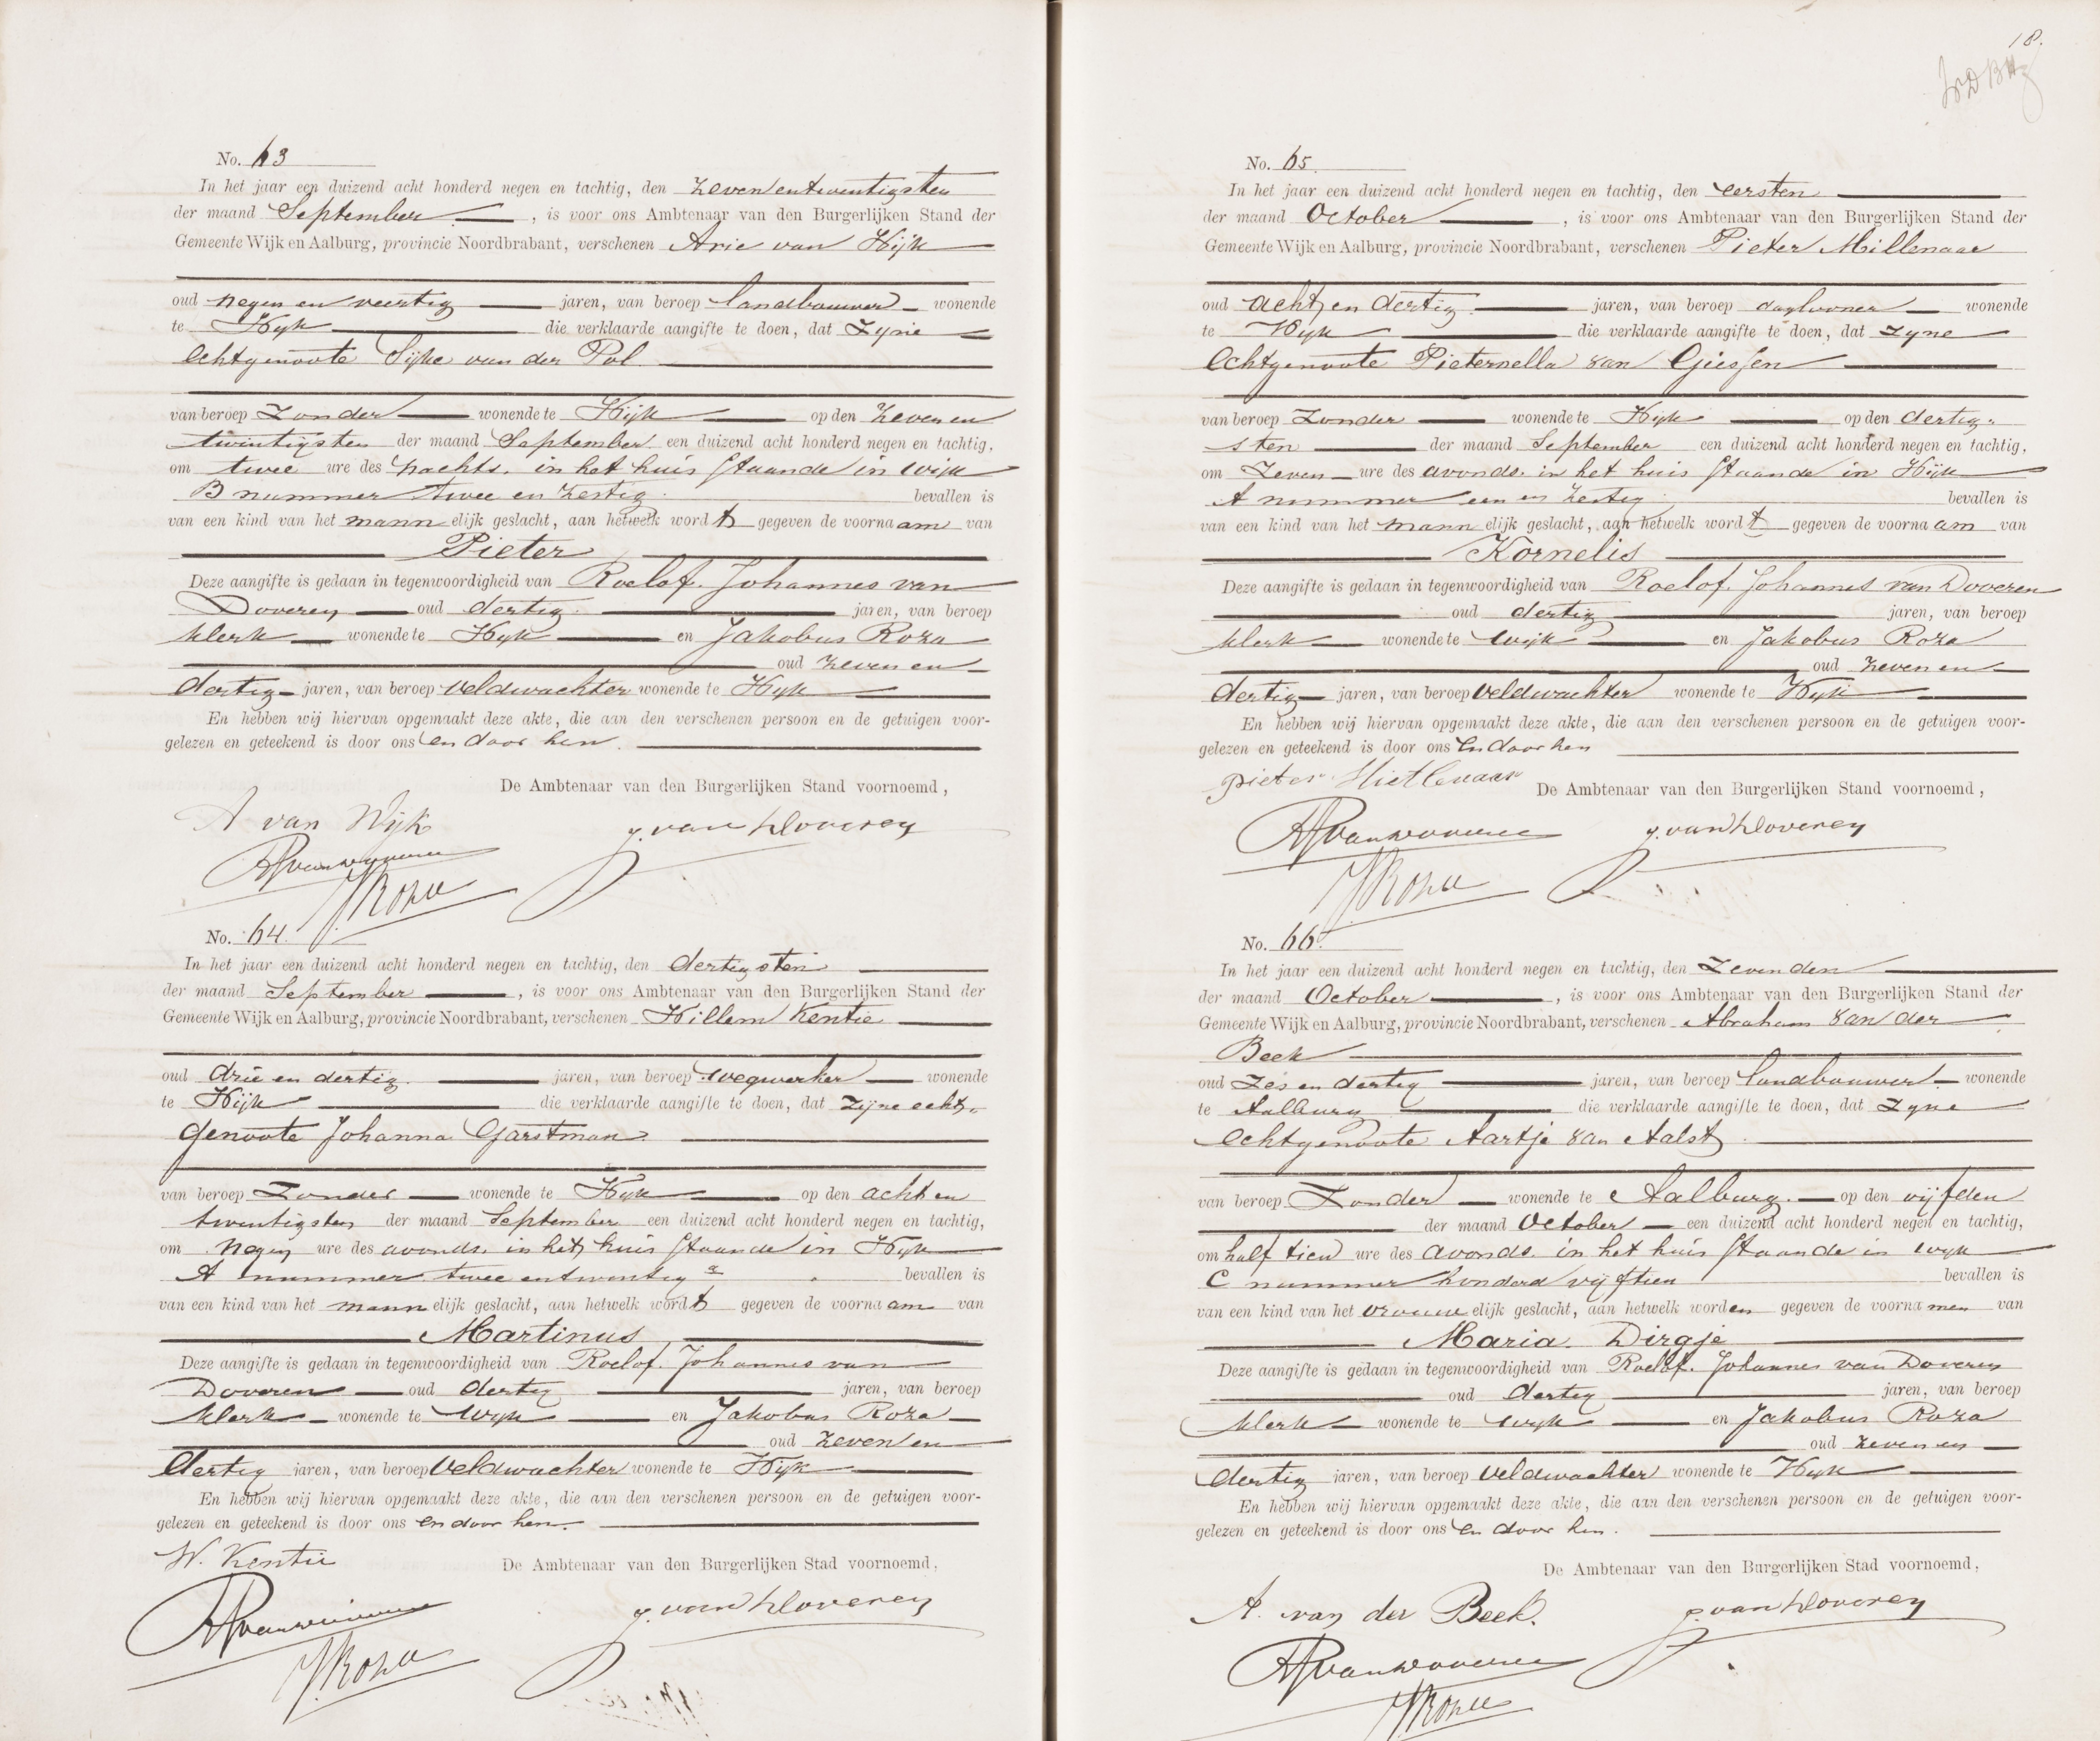 No. 63
In het jaar een duizend acht honderd negen en tachtig, den zevenentwintigsten
der maand September, is voor ons Ambtenaar van den Burgerlijken Stand der
Gemeente Wijk en Aalburg, provincie Noordbrabant, verschenen Arie van Wijk
oud negen en veertig jaren, van beroep landbouwer wonende
te Wijk die verklaarde aangifte te doen, dat zijne
echtgenoote Sijke van der Pol
van beroep zonder wonende te Wijk op den zeven en
twintigsten der maand September een duizend acht honderd negen en tachtig,
om twee ure des nachts in het huis staande in Wijk
B nummer twee en zestig. bevallen is
van een kind van het mannelijk geslacht, aan hetwelk wordt gegeven de voornaam van
Pieter
Deze aangifte is gedaan in tegenwoordigheid van Roelof Johannes van
Doveren oud dertig jaren, van beroep
klerk wonende te Wijk en Jakobus Roza
oud zeven en
dertig jaren, van beroep veldwachter wonende te Wijk
En hebben wij hiervan opgemaakt deze akte, die aan den verschenen persoon en de getuigen voor-
gelezen en geteekend is door ons en door hen.
De Ambtenaar van den Burgerlijken Stand voornoemd,
A van Wijk
J. van Doveren
JRoza
No. 64.
In het jaar een duizend acht honderd negen en tachtig, den dertigsten
der maand September, is voor ons Ambtenaar van den Burgerlijken Stand der
Gemeente Wijk en Aalburg, provincie Noordbrabant, verschenen Willem Kentie
oud drie en dertig jaren, van beroep wegwerker wonende
te Wijk die verklaarde aangifte te doen, dat zijne echt-
genoote Johanna Garstman
van beroep zonder wonende te Wijk op den acht en
twintigsten der maand September een duizend acht honderd negen en tachtig,
om negen ure des avonds in het huis staande in Wijk
A nummer twee en twintig a bevallen is
van een kind van het mannelijk geslacht, aan hetwelk wordt gegeven de voornaam van
Martinus
Deze aangifte is gedaan in tegenwoordigheid van Roelof Johannes van
Doveren oud dertig jaren, van beroep
klerk wonende te Wijk en Jakobus Roza
oud zeven en
dertig jaren, van beroep veldwachter wonende te Wijk
En hebben wij hiervan opgemaakt deze akte, die aan den verschenen persoon en de getuigen voor-
gelezen en geteekend is door ons en door hen.
W. Kentie
De Ambtenaar van den Burgerlijken Stad voornoemd,
J. van Doveren
JRoza
18.
No. 65.
In het jaar een duizend acht honderd negen en tachtig, den eersten
der maand October, is voor ons Ambtenaar van den Burgerlijken Stand der
Gemeente Wijk en Aalburg, provincie Noordbrabant, verschenen Pieter Millenaar
oud acht en dertig jaren, van beroep daglooner wonende
te Wijk die verklaarde aangifte te doen, dat zijne
echtgenoote Pieternella van Giessen
van beroep zonder wonende te Wijk op den dertig-
sten der maand September een duizend acht honderd negen en tachtig,
om zeven ure des avonds in het huis staande in Wijk
A nummer een en zestig bevallen is
van een kind van het mannelijk geslacht, aan hetwelk wordt gegeven de voornaam van
Kornelis
Deze aangifte is gedaan in tegenwoordigheid van Roelof Johannes van Doveren
oud dertig jaren, van beroep
klerk wonende te Wijk en Jakobus Roza
oud zeven en
dertig jaren, van beroep veldwachter wonende te Wijk
En hebben wij hiervan opgemaakt deze akte, die aan den verschenen persoon en de getuigen voor-
gelezen en geteekend is door ons en door hen
Pieter
De Ambtenaar van den Burgerlijken Stand voornoemd,
J. van Doveren
JRoza
No. 66.
In het jaar een duizend acht honderd negen en tachtig, den zevenden
der maand October, is voor ons Ambtenaar van den Burgerlijken Stand der
Gemeente Wijk en Aalburg, provincie Noordbrabant, verschenen Abraham van der
Beek
oud zes en dertig jaren, van beroep landbouwer wonende
te Aalburg die verklaarde aangifte te doen, dat zijne
echtgenoote Aartje van Aalst
van beroep zonder wonende te Aalburg op den vijfden
der maand October een duizend acht honderd negen en tachtig,
om half tien ure des avonds in het huis staande in Wijk
C nummer honderd vijftien bevallen is
van een kind van het vrouwelijk geslacht, aan hetwelk worden gegeven de voornamen van
Maria Dirgje
Deze aangifte is gedaan in tegenwoordigheid van Roelof Johannes van Doveren
oud dertig jaren, van beroep
klerk wonende te Wijk en Jakobus Roza
oud zeven en
dertig jaren, van beroep veldwachter wonende te Wijk
En hebben wij hiervan opgemaakt deze akte, die aan den verschenen persoon en de getuigen voor-
gelezen en geteekend is door ons en door hen.
De Ambtenaar van den Burgerlijken Stad voornoemd,
A. van der Beek.
J. van Doveren
JRoza